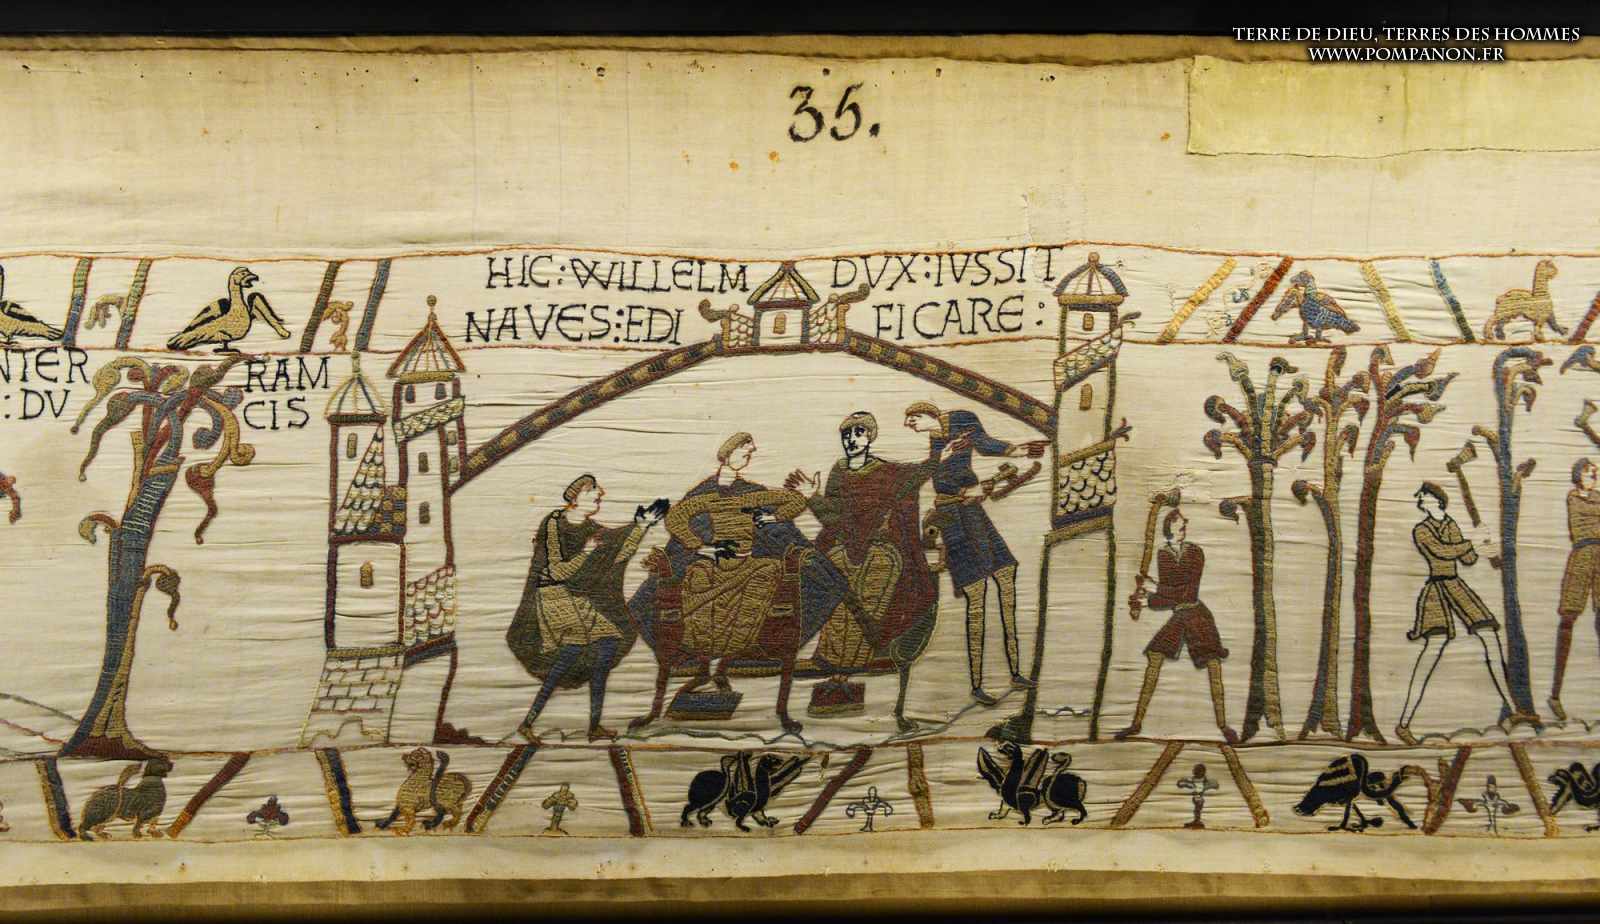 TERRE DE DIEU, TERRES DES HOMMES
WWW.POMPANON.FR
35.
HIC:WILLELM DVX:IVSSIT
NAVES:EDI FICARE:
NTER RAM
:DV CIS